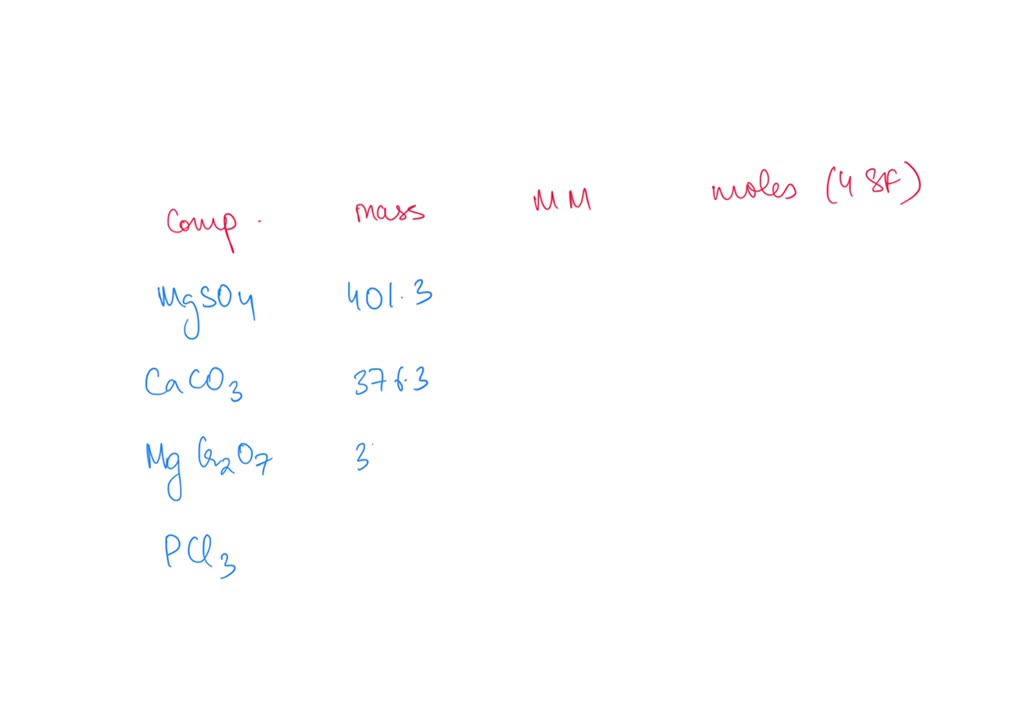 Comp. mass MM moles (4 SF)
MgSO4 401.3
CaCO3 376.3
Mg Cr2O7 3
PCl3